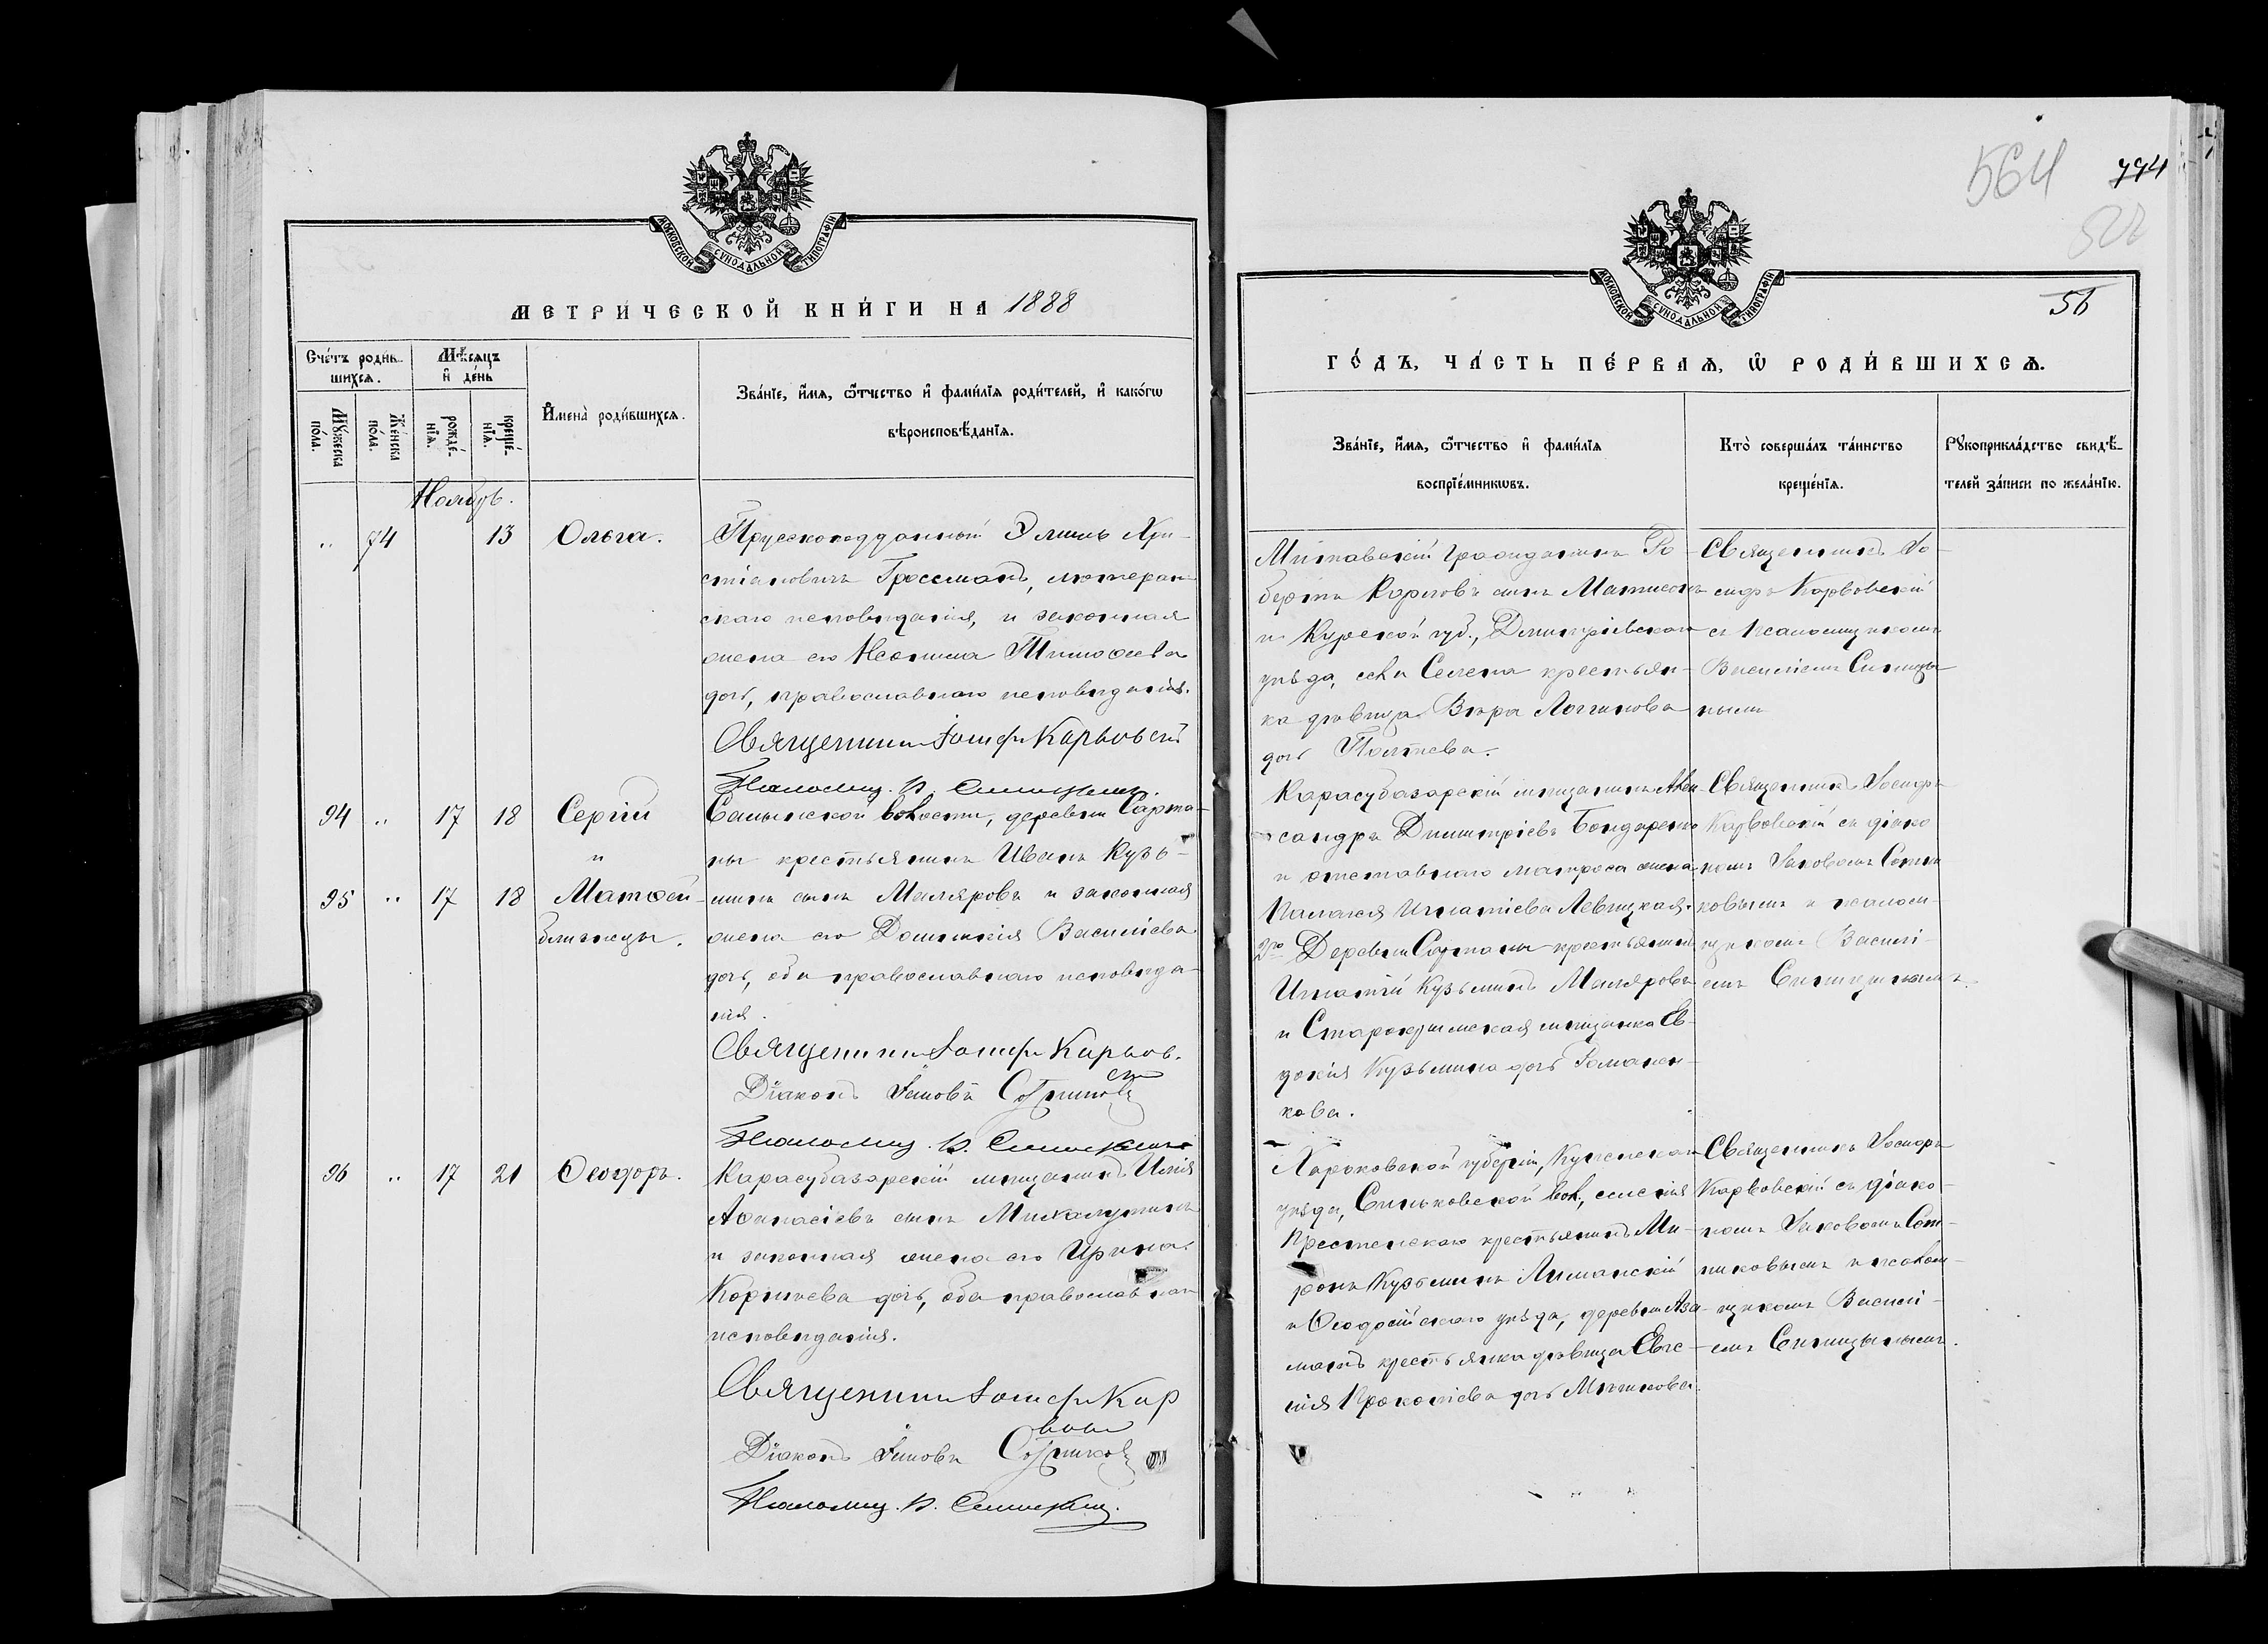 МОСКОВСКОЙ СУНОДАЛЬНОЙ ТИПОГРАФІИ
МЕТРИЧЕСКОЙ КНИГИ НА 1888
Счетъ родив-
шихся.
Мѣсяцъ
и день
Мужеска
пола.
Женска
пола.
рожде-
нія.
креще-
нія.
Имена родившихся.
Званіе, имя, отчество и фамилія родителей, и какогѡ
вѣроисповѣданія.
Ноябрь.
„ 74 13 Ольга.
Прусскоподданный Эмиль Хри-
стіановичъ Гроссманъ, лютеран-
скаго исповѣданія, и законная
жена его Тимоѳеева
дочь, православнаго исповѣданія.
Священникъ Іосифъ Карповскій
Псаломщ. В. Синицынъ.
94 „ 17 18 Сергій
и
95 „ 17 18 Матѳей
близнецы.
волости, деревни Сарта-
ны крестьянинъ Иванъ Кузь-
минъ сынъ Маляровъ и законная
жена его Домникія Васильева
дочь, оба православнаго исповѣда-
нія.
Священникъ Іосифъ Карпов.
скій
Діаконъ Іаковъ Сотниковъ
Псаломщ. В. Синицынъ
96 „ 17 21 Ѳеодоръ.
Карасубазарскій мѣщанинъ Илія
Аѳанасіевъ сынъ
и законная жена его Ирина
Корнѣева дочь, оба православнаго
исповѣданія.
Священникъ Іосифъ Кар
повскій
Діаконъ Іаковъ Сотниковъ
Псаломщ. В. Синицынъ.
564
794
522
56
МОСКОВСКОЙ СУНОДАЛЬНОЙ ТИПОГРАФІИ
ГОДЪ, ЧАСТЬ ПЕРВАЯ, Ѡ РОДИВШИХСЯ.
Званіе, имя, отчество и фамилія
воспріемникѡвъ.
Кто совершалъ таинство
крещенія.
Рукоприкладство свидѣ-
телей записи по желанію.
Митавскій гражданинъ Ро-
бертъ Карловъ сынъ Матисонъ
и Курской губ., Дмитріевскаго
уѣзда, села Селена крестьян-
ка дѣвица Вѣра Логгинова
дочь Полтева.
Священникъ Іо-
сифъ Карповскій
съ псаломщикомъ
Василіемъ Синицы-
нымъ
Карасубазарскій мѣщанинъ Алек-
сандръ Димитріевъ Бондаренко
и отставнаго матроса жена
Пелагія Игнатіева Левицкая.
2го Деревни Сартаны крестьянинъ
Игнатій Кузьминъ Маляровъ
и Старокрымская мѣщанка Ев-
докія Кузьмина дочь Романен-
кова.
Священникъ Іосифъ
Карповскій съ діако
номъ Іаковомъ Сотни
ковымъ и псалом-
щикомъ Василі-
емъ Синицынымъ.
Харьковской губерніи, Купянскаго
уѣзда, Сеньковской вол., селенія
крестьянинъ Ми-
ронъ Кузьминъ Лиманскій
и Ѳеодосійскаго уѣзда, деревни Аза-
матъ крестьянка дѣвица Евге-
нія Прокопіева дочь
Священникъ Іосифъ
Карповскій съ діако-
номъ Іаковомъ Сот-
никовымъ и псалом-
щикомъ Василі-
емъ Синицынымъ.